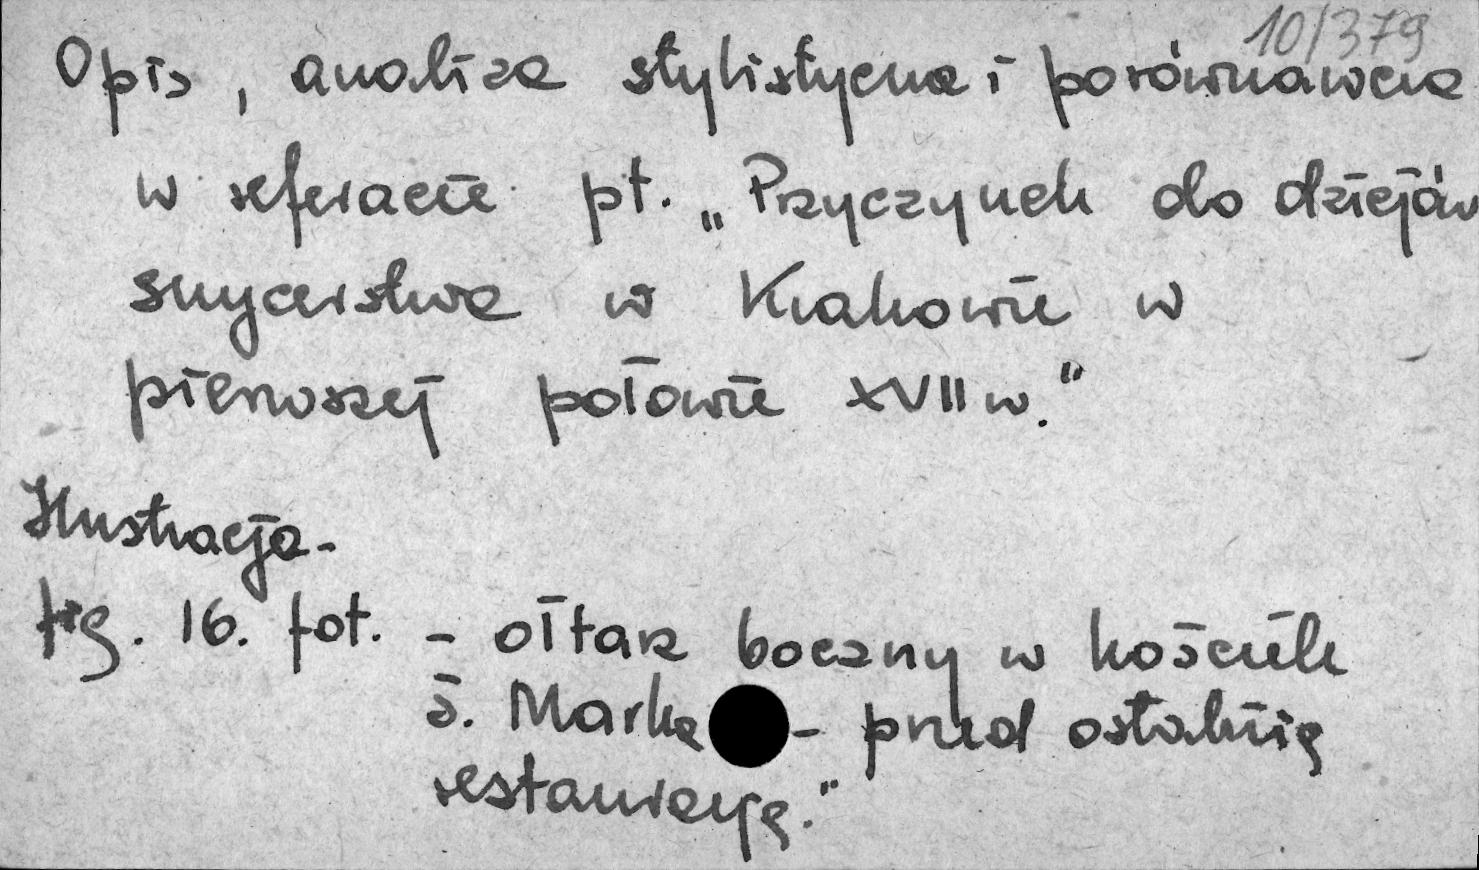 10/379
Opis, analiza stylistyczna i porównawcza
w referacie pt. „Przyczynek do dziejów
snycerstwa w Krakowie w
pierwszej połowie XVII w."
Ilustracja -
fig. 16. fot. - ołtarz boczny w kościele
ś. Marka - przed ostatnią
restauracyą."